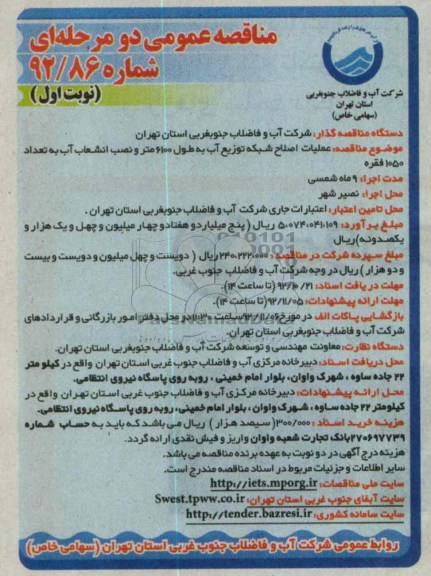 مناقصه عمومی دو مرحله‌ای
شماره ۹۲/۸۶
(نوبت اول)
شرکت آب و فاضلاب جنوبغربی
استان تهران
(سهامی خاص)
دستگاه مناقصه گذار: شرکت آب و فاضلاب جنوبغربی استان تهران
موضوع مناقصه: عملیات اصلاح شبکه توزیع آب به طول ۶۱۰۰ متر و نصب انشعاب آب به تعداد
۱۰۵۰ فقره
مدت اجرا: ۹ ماه شمسی
محل اجرا: نصیر شهر
محل تامین اعتبار: اعتبارات جاری شرکت آب و فاضلاب جنوبغربی استان تهران .
مبلغ برآورد: ۵۰۷۴۰۰۴۱۰۱۰۹ ریال ( پنج میلیارد و هفتاد و چهار میلیون و چهل و یک هزار و
یکصدونه) ریال
مبلغ سپرده شرکت در مناقصه: ۲۴۰۰۲۲۲۰۰۰۰ ریال ( دویست و چهل میلیون و دویست و بیست
و دو هزار ) ریال در وجه شرکت آب و فاضلاب جنوب غربی.
مهلت دریافت اسناد: ۹۲/۱۰/۲۱ (تا ساعت ۱۴).
مهلت ارائه پیشنهادات: ۹۲/۱۱/۰۵ (تا ساعت ۱۴).
بازگشایی پاکات الف در مورخ ۹۲/۱۱/۰۶ ساعت ۱۱:۳۰ در محل دفتر امور بازرگانی و قراردادهای
شرکت آب و فاضلاب جنوب غربی استان تهران.
دستگاه نظارت: معاونت مهندسی و توسعه شرکت آب و فاضلاب جنوبغربی استان تهران.
محل دریافت اسناد: دبیرخانه مرکزی آبفای جنوب غربی استان تهران واقع در کیلو متر
۲۲ جاده ساوه ، شهرک واوان، بلوار امام خمینی ، روبه روی پاسگاه نیروی انتظامی.
محل ارائه پیشنهادات: دبیرخانه مرکزی آبفای جنوب غربی استان تهران واقع در
کیلومتر ۲۲ جاده ساوه ، شهرک واوان ، بلوار امام خمینی، روبه روی پاسگاه نیروی انتظامی.
هزینه خرید اسناد: ۳۰۰/۰۰۰ (سیصد هزار ) ریال می باشد که باید به حساب شماره
۲۷۰۶۹۷۷۳۹ بانک تجارت شعبه واوان واریز و فیش نقدی ارائه گردد.
هزینه درج آگهی در دو نوبت به عهده برنده مناقصه می باشد.
سایر اطلاعات و جزئیات مربوط در اسناد مناقصه مندرج است.
سایت ملی مناقصات: http://iets.mporg.ir
سایت آبفای جنوب غربی استان تهران: Swest.tpww.co.ir
سایت سامانه کشوری: http://tender.bazresi.ir
روابط عمومی شرکت آب و فاضلاب جنوب غربی استان تهران (سهامی خاص)